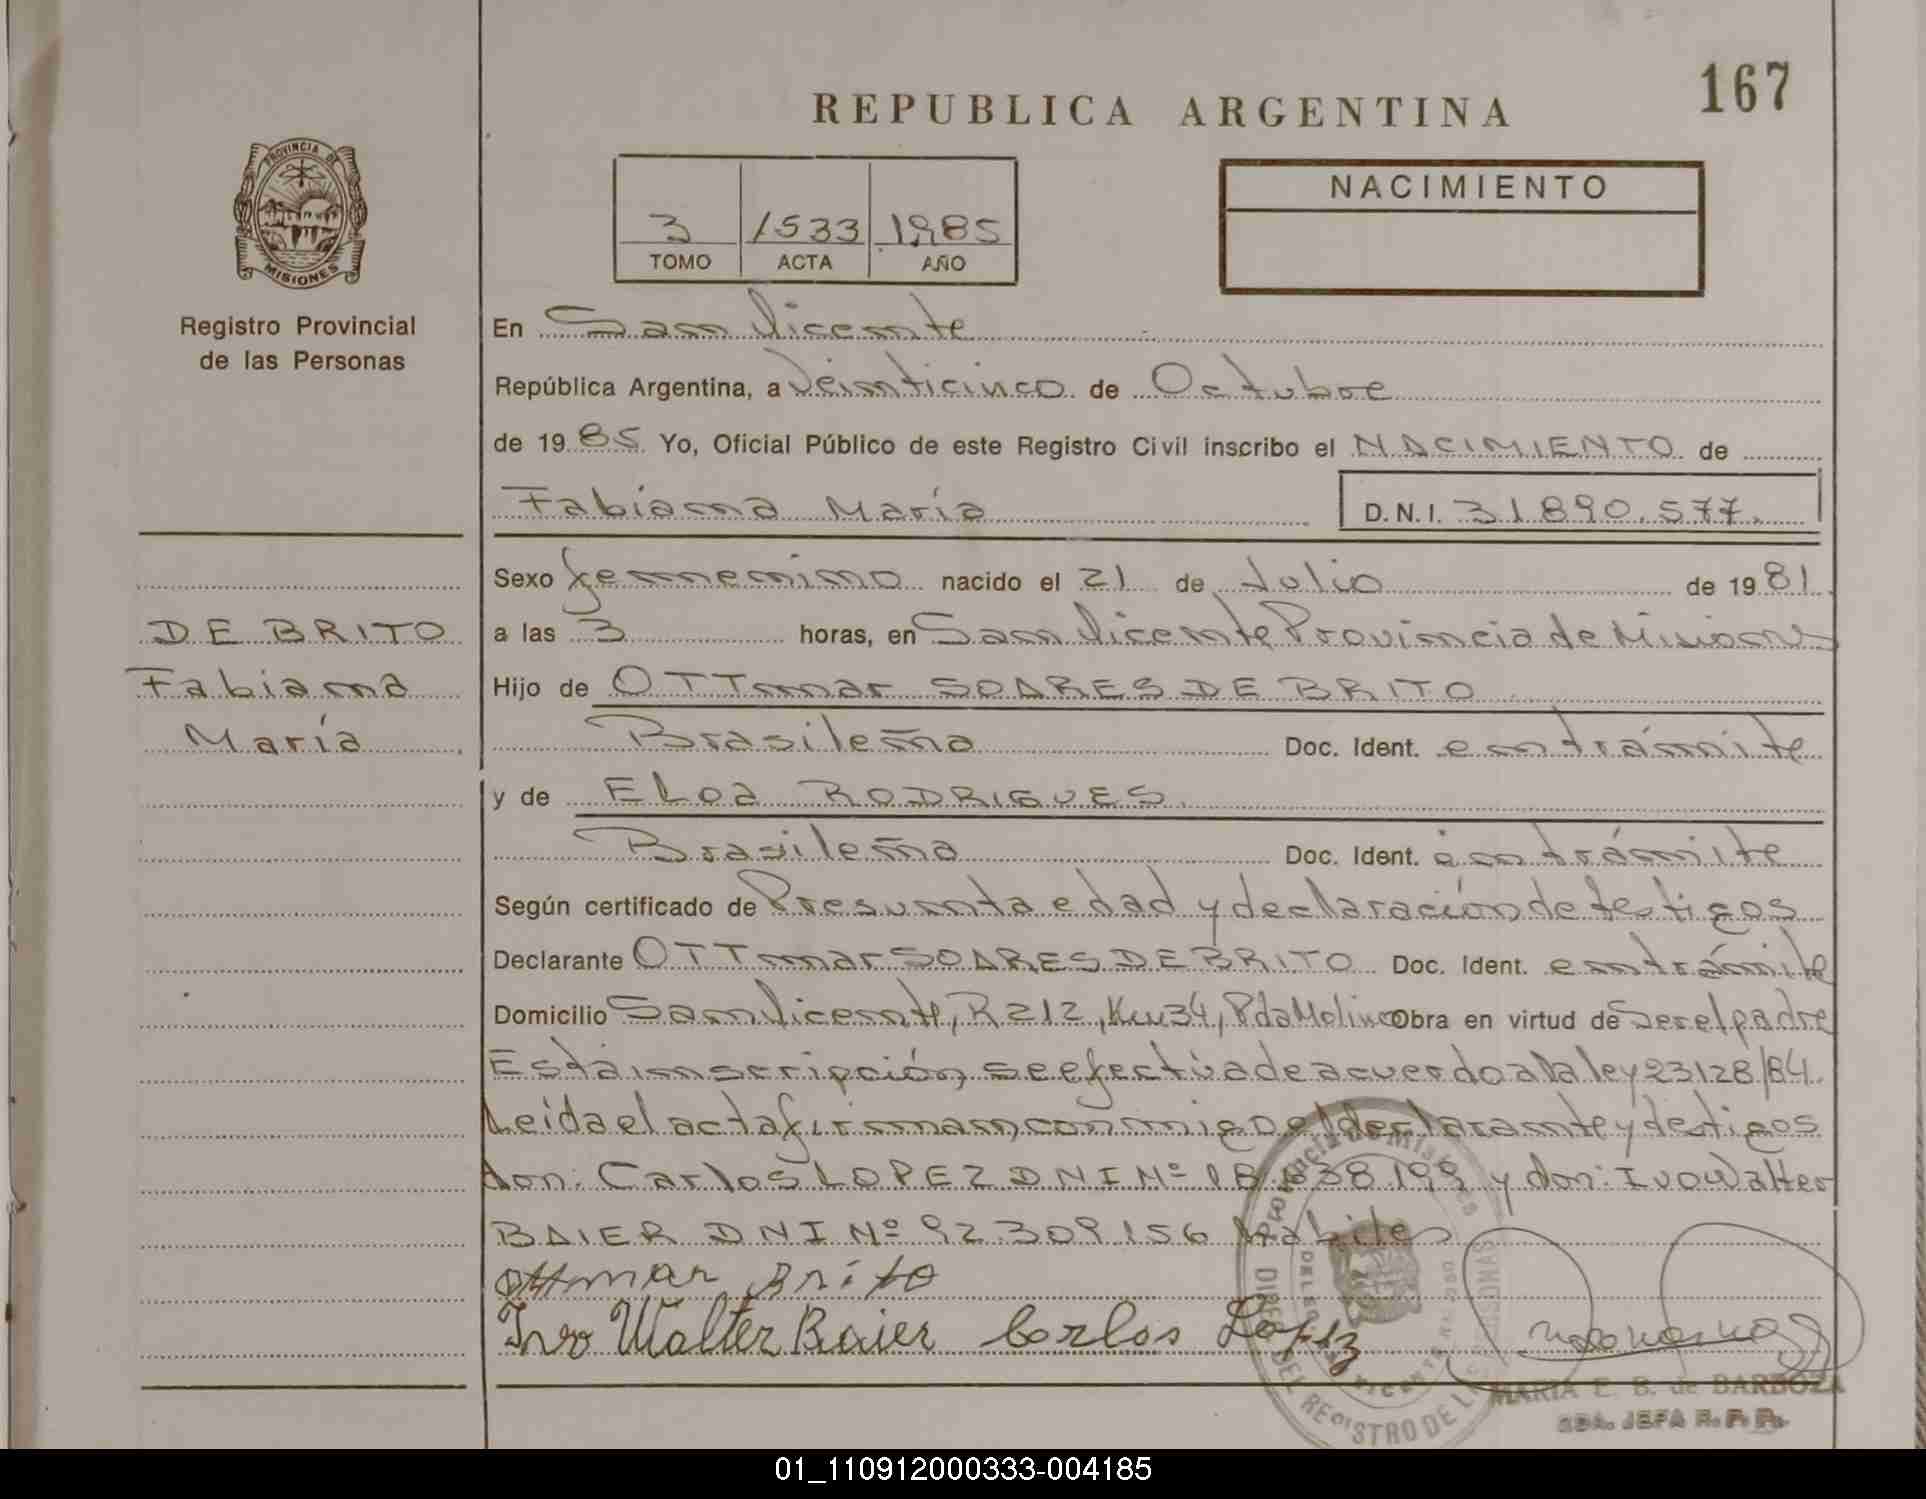 167
REPUBLICA ARGENTINA
PROVINCIA DE
MISIONES
Registro Provincial
de las Personas
3 1533 1985
TOMO ACTA AÑO
NACIMIENTO
En San Vicente
República Argentina, a Veinticinco de Octubre
de 1985 Yo, Oficial Público de este Registro Civil inscribo el NACIMIENTO de
Fabiana María D.N.I. 31.890.577.
Sexo femnenino nacido el 21 de Julio de 1981
a las 3 horas, en San Vicente Provincia de Misiones
Hijo de OTTmar SOARES DE BRITO
Brasileña Doc. Ident. en trámite
y de ELOA RODRIGUES
Brasileña Doc. Ident. en trámite
Según certificado de Presunta edad y declaración de testigos
Declarante OTTmar SOARES DE BRITO Doc. Ident. en trámite
Domicilio San Vicente, R 212, Km 34, Pda Molino Obra en virtud de Ser el padre
Esta inscripción se efectúa de acuerdo a la ley 23128/84.
Leída el acta firman conmigo el declarante y testigos
don: Carlos LOPEZ DNI Nº 18.038.199 y don: Ivo Walter
BAIER DNI Nº 92.309.156 habiles
Ottmar Brito
Ivo Walter Baier Carlos López
DE BRITO
Fabiana
María
MARIA E. B. de BARBOZA
JEFA R. P. P.
01_110912000333-004185